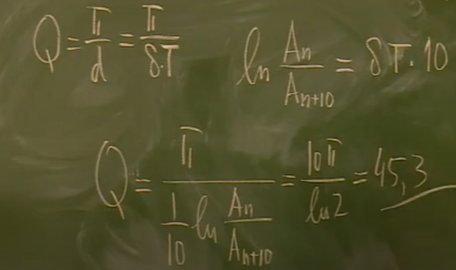 Q = π/d = π/(δ·T)    ln A_n/A_{n+10} = δT·10
Q = π/(1/10 ln A_n/A_{n+10}) = 10π/ln2 = 45,3